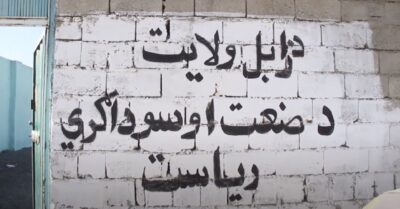 د زابل ولایت
د صنعت او سوداګرۍ
ریاست